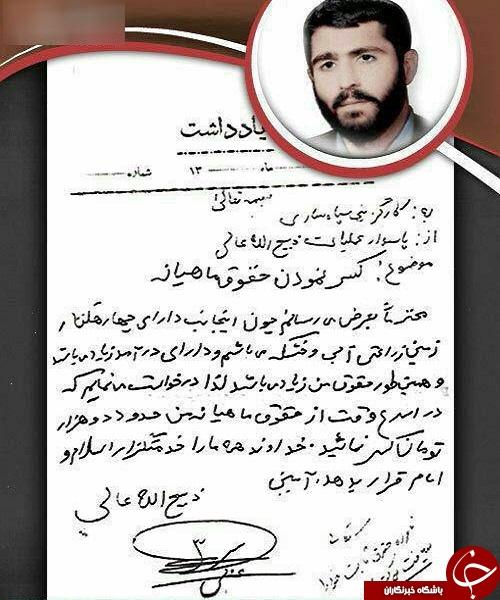 یادداشت
ماه ۱۳ شماره
بسمه تعالی
به: کارگزینی سپاه ساری
از: پاسدار عملیات ذبیح الله عالی
موضوع: کسر نمودن حقوق ماهیانه
محترماً بعرض می رسانم چون اینجانب دارای چهار هکتار
زمین زراعتی آبی و خشکه می باشم و دارای درآمد زیاد می باشد
و همینطور حقوق من زیاد می باشد لذا درخواست می نمایم که
در اسرع وقت از حقوق ماهیانه من حدود دو هزار
تومان کسر نمائید. خداوند همه ما را خدمتگزار اسلام و
امام قرار بدهد. آمین
ذبیح الله عالی
باشگاه خبرنگاران